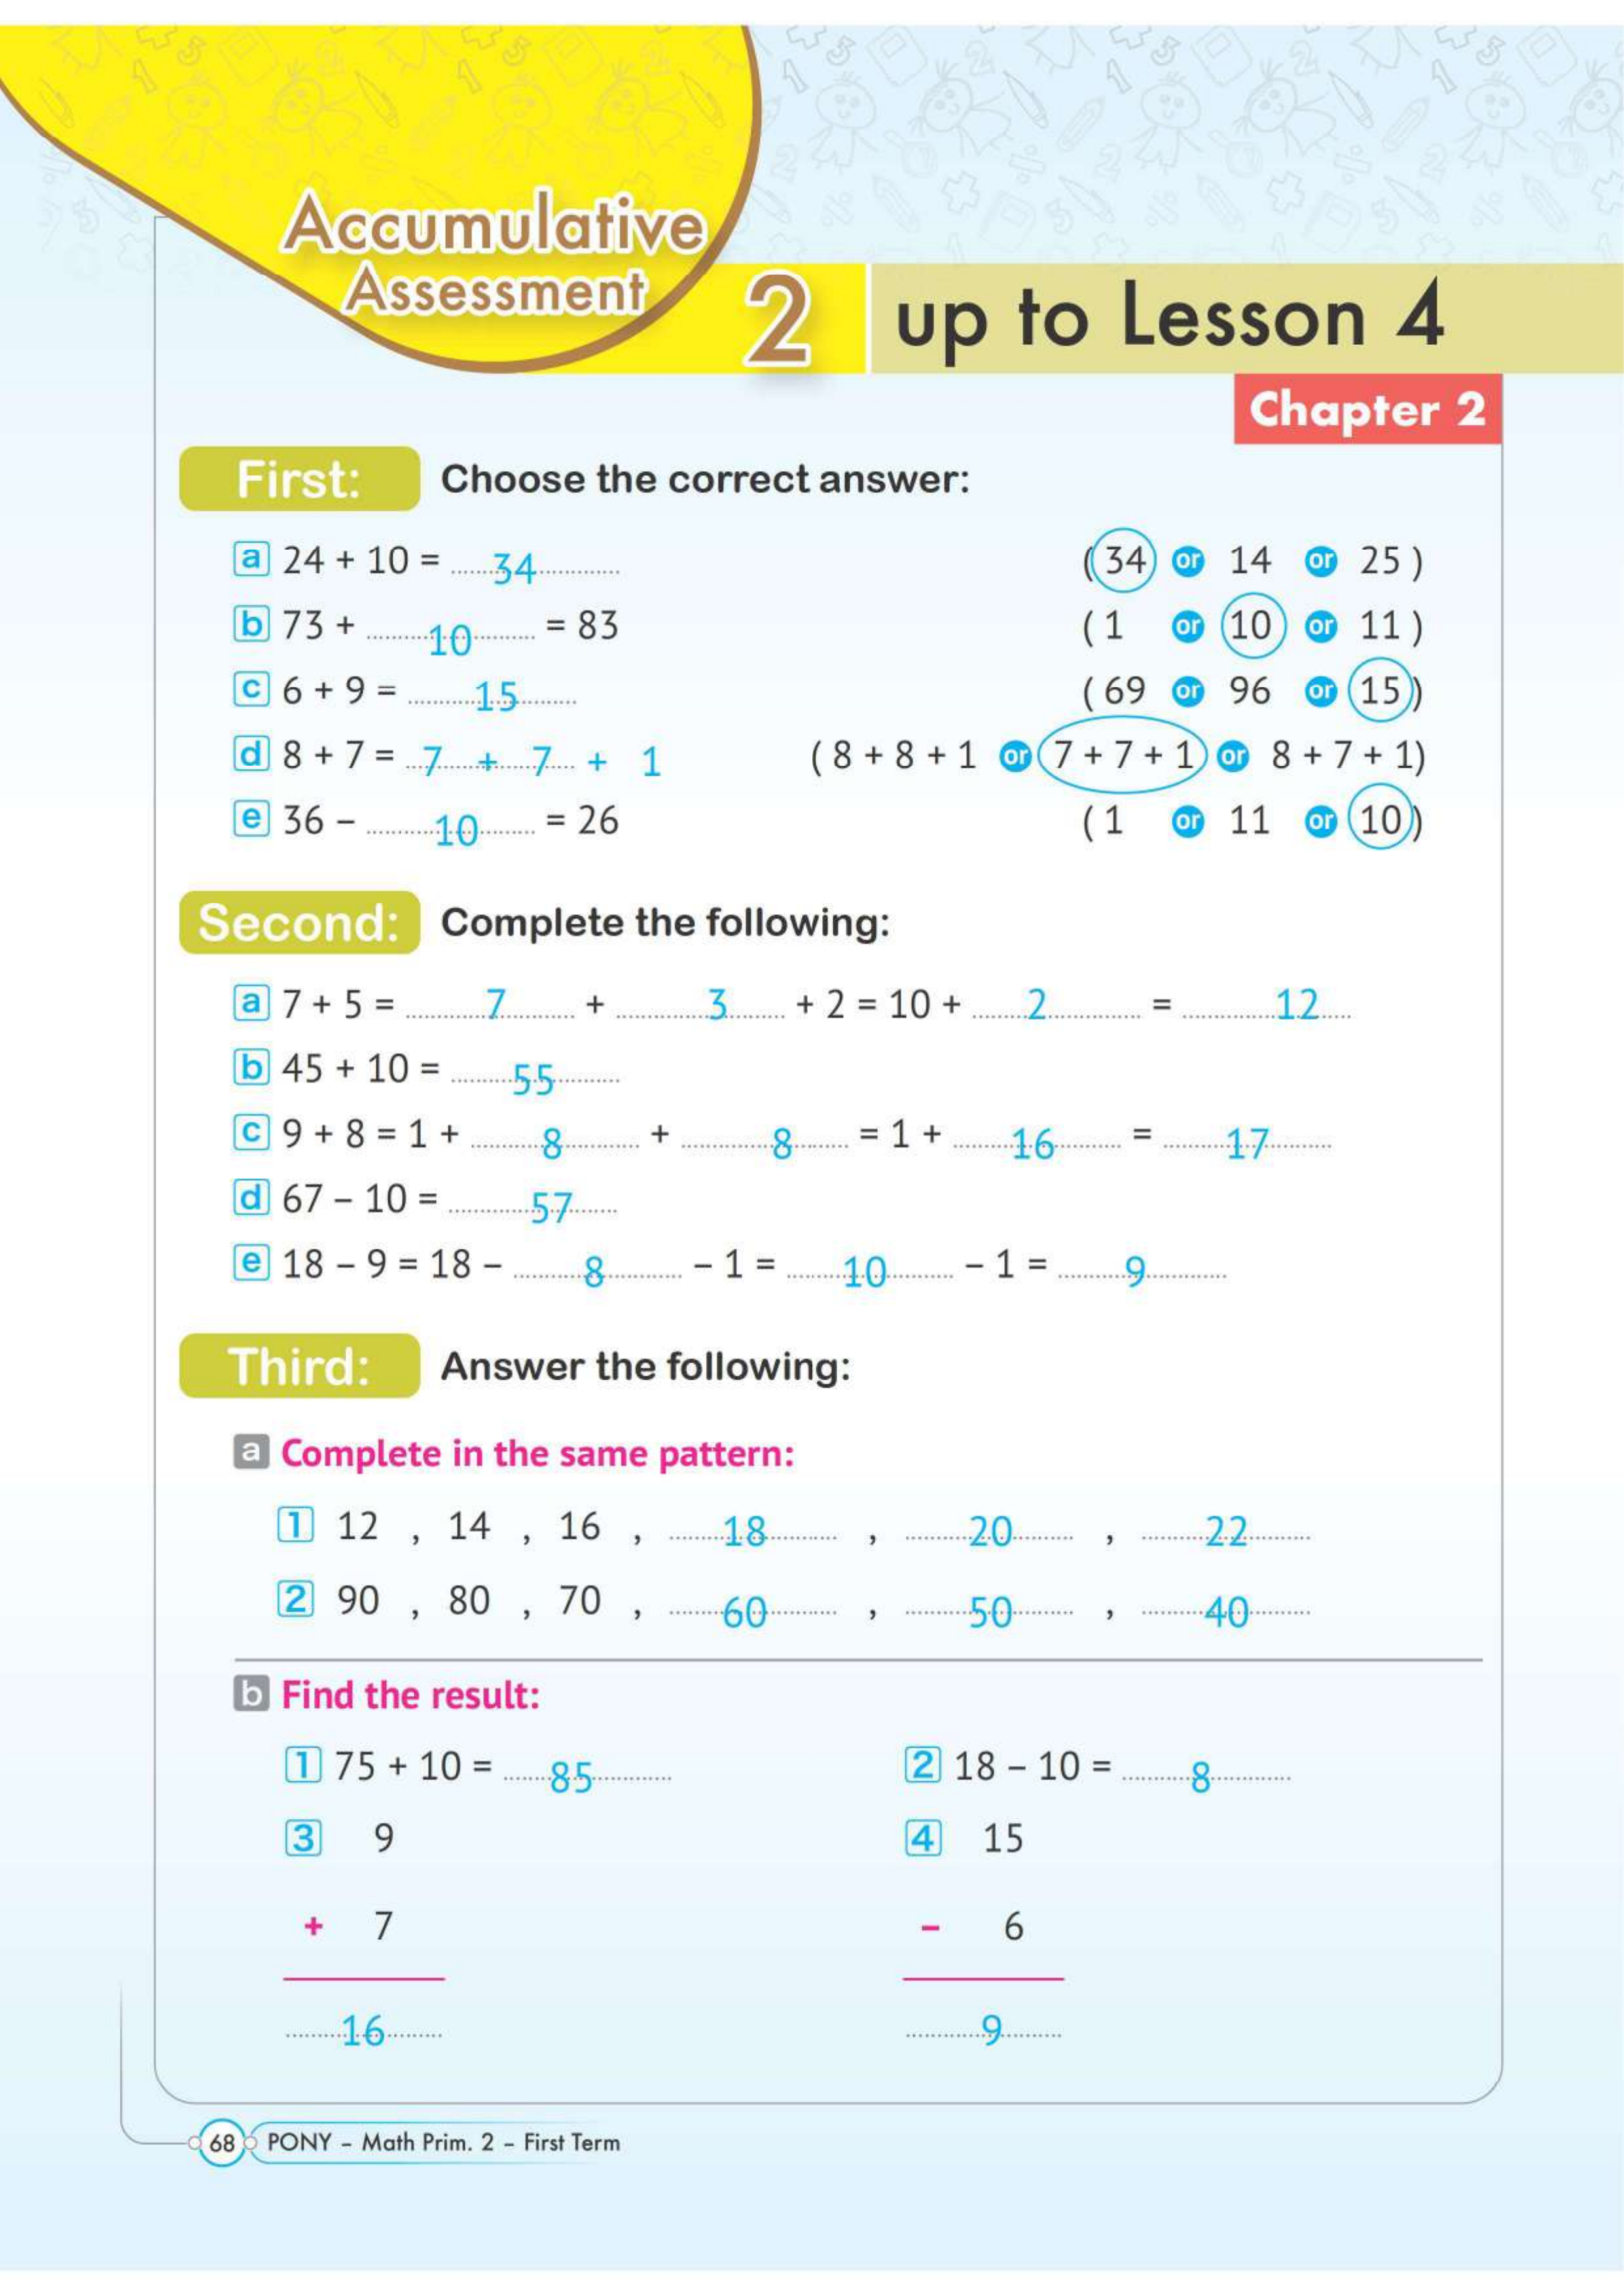 Accumulative
Assessment 2 up to Lesson 4
Chapter 2
First: Choose the correct answer:
a 24 + 10 = 34 ( 34 or 14 or 25 )
b 73 + 10 = 83 ( 1 or 10 or 11 )
c 6 + 9 = 15 ( 69 or 96 or 15 )
d 8 + 7 = 7 + 7 + 1 ( 8 + 8 + 1 or 7 + 7 + 1 or 8 + 7 + 1)
e 36 – 10 = 26 ( 1 or 11 or 10 )
Second: Complete the following:
a 7 + 5 = 7 + 3 + 2 = 10 + 2 = 12
b 45 + 10 = 55
c 9 + 8 = 1 + 8 + 8 = 1 + 16 = 17
d 67 – 10 = 57
e 18 – 9 = 18 – 8 – 1 = 10 – 1 = 9
Third: Answer the following:
a Complete in the same pattern:
1 12 , 14 , 16 , 18 , 20 , 22
2 90 , 80 , 70 , 60 , 50 , 40
b Find the result:
1 75 + 10 = 85 2 18 – 10 = 8
3 9 4 15
+ 7 – 6
16 9
68 PONY – Math Prim. 2 – First Term